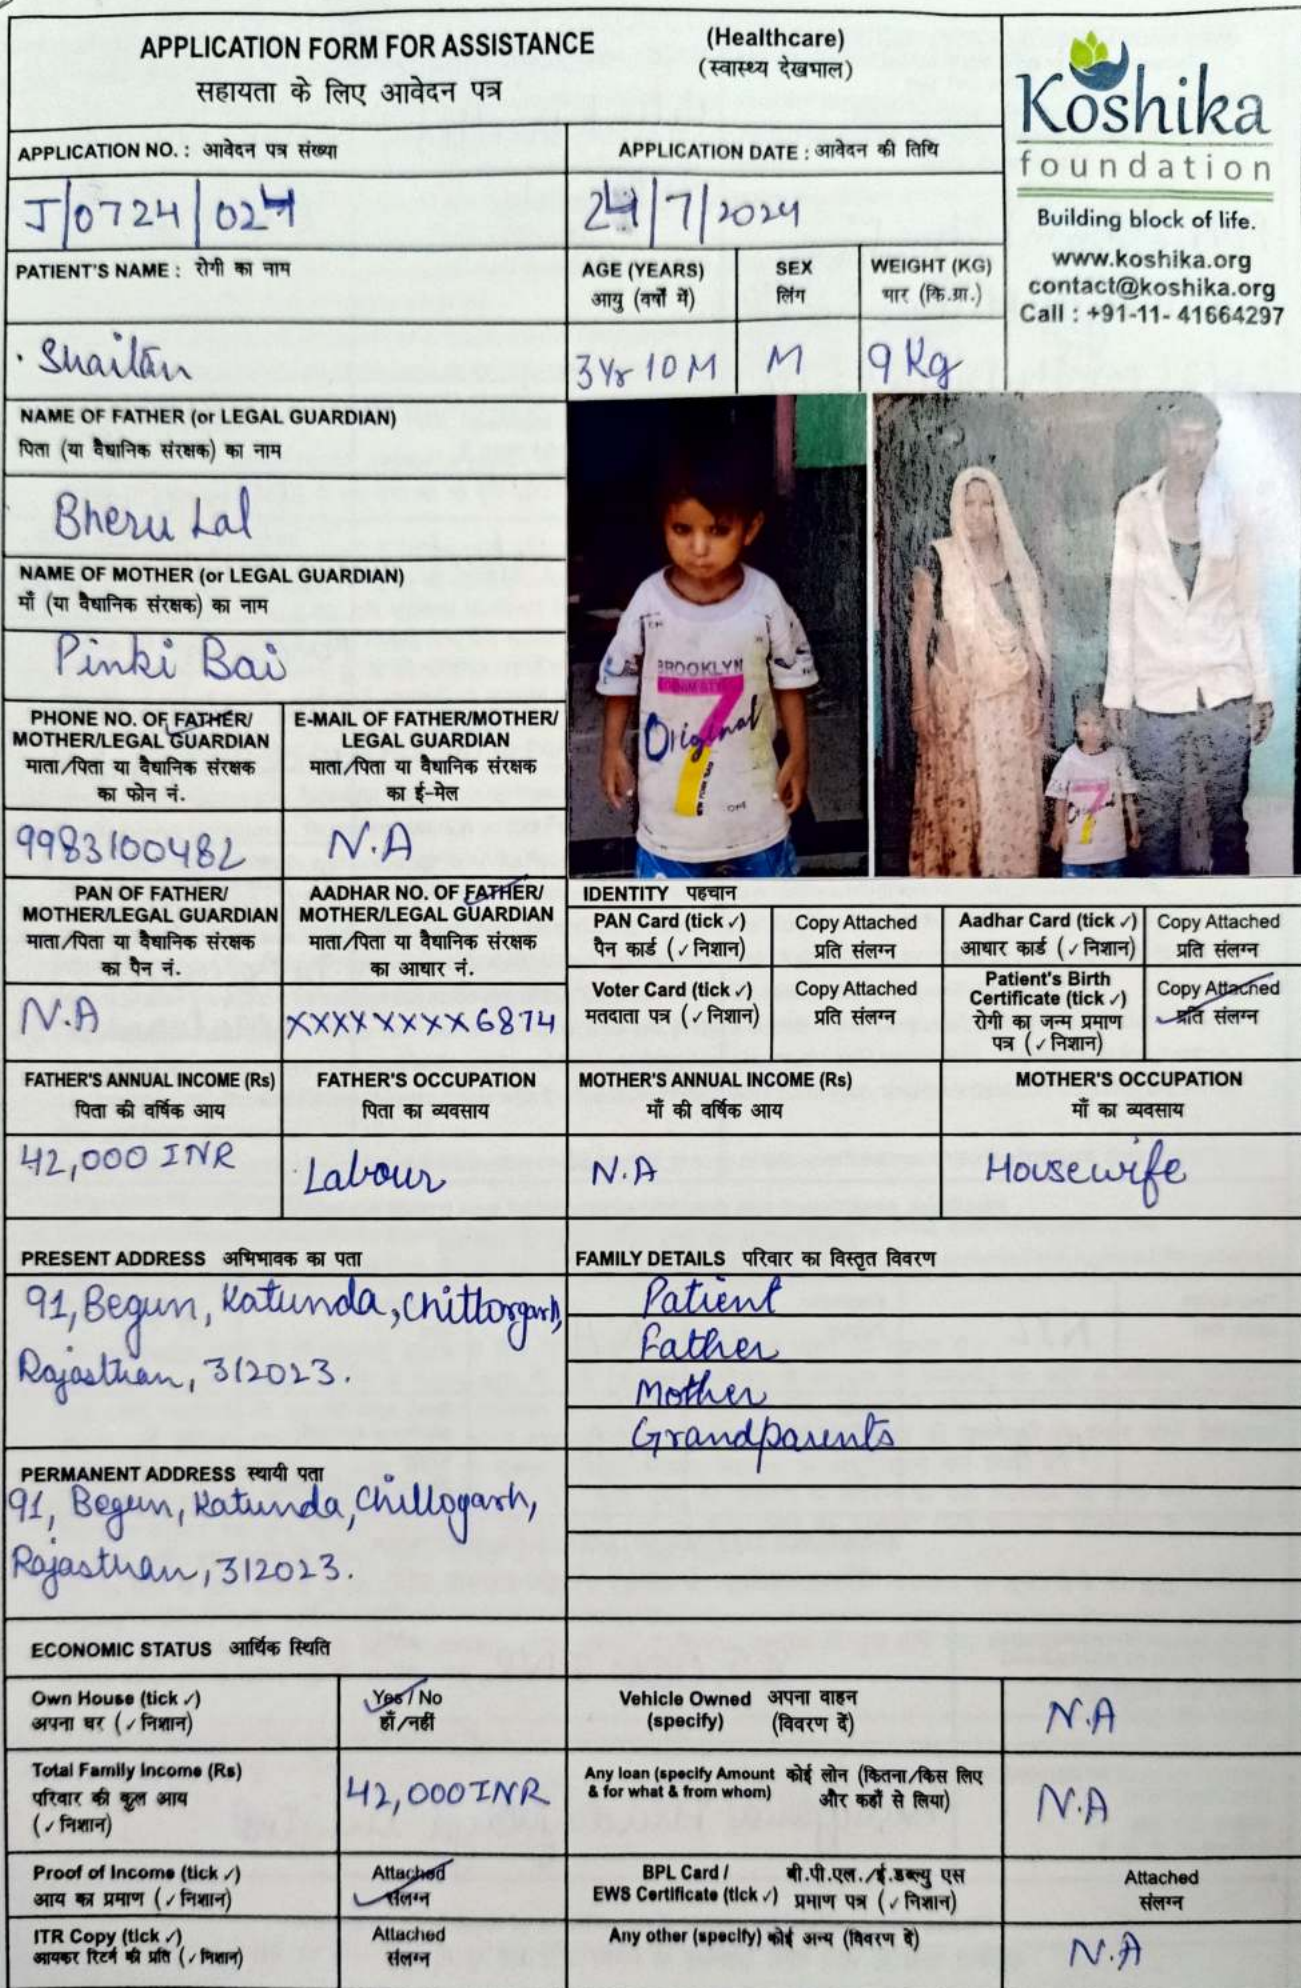 APPLICATION FORM FOR ASSISTANCE (Healthcare)
सहायता के लिए आवेदन पत्र (स्वास्थ्य देखभाल)
Koshika
foundation
Building block of life.
www.koshika.org
contact@koshika.org
Call : +91-11- 41664297
APPLICATION NO. : आवेदन पत्र संख्या
APPLICATION DATE : आवेदन की तिथि
J/0724/024
24/7/2024
PATIENT'S NAME : रोगी का नाम
AGE (YEARS)
आयु (वर्षों में)
SEX
लिंग
WEIGHT (KG)
भार (कि.ग्रा.)
Shaitan
3 Yr 10 M
M
9 Kg
NAME OF FATHER (or LEGAL GUARDIAN)
पिता (या वैधानिक संरक्षक) का नाम
Bheru Lal
NAME OF MOTHER (or LEGAL GUARDIAN)
माँ (या वैधानिक संरक्षक) का नाम
Pinki Bai
BROOKLYN
7
Original
7
PHONE NO. OF FATHER/
MOTHER/LEGAL GUARDIAN
माता/पिता या वैधानिक संरक्षक
का फोन नं.
E-MAIL OF FATHER/MOTHER/
LEGAL GUARDIAN
माता/पिता या वैधानिक संरक्षक
का ई-मेल
9983100482
N.A
PAN OF FATHER/
MOTHER/LEGAL GUARDIAN
माता/पिता या वैधानिक संरक्षक
का पैन नं.
AADHAR NO. OF FATHER/
MOTHER/LEGAL GUARDIAN
माता/पिता या वैधानिक संरक्षक
का आधार नं.
N.A
XXXXXXXX6874
IDENTITY पहचान
PAN Card (tick ✓)
पैन कार्ड (✓ निशान)
Copy Attached
प्रति संलग्न
Aadhar Card (tick ✓)
आधार कार्ड (✓ निशान)
Copy Attached
प्रति संलग्न
Voter Card (tick ✓)
मतदाता पत्र (✓ निशान)
Copy Attached
प्रति संलग्न
Patient's Birth
Certificate (tick ✓)
रोगी का जन्म प्रमाण
पत्र (✓ निशान)
Copy Attached
प्रति संलग्न
FATHER'S ANNUAL INCOME (Rs)
पिता की वर्षिक आय
FATHER'S OCCUPATION
पिता का व्यवसाय
MOTHER'S ANNUAL INCOME (Rs)
माँ की वर्षिक आय
MOTHER'S OCCUPATION
माँ का व्यवसाय
42,000 INR
Labour
N.A
Housewife
PRESENT ADDRESS अभिभावक का पता
91, Begun, Katunda, Chittorgarh,
Rajasthan, 312023.
FAMILY DETAILS परिवार का विस्तृत विवरण
Patient
Father
Mother
Grandparents
PERMANENT ADDRESS स्थायी पता
91, Begun, Katunda, Chillogarh,
Rajasthan, 312023.
ECONOMIC STATUS आर्थिक स्थिति
Own House (tick ✓)
अपना घर (✓ निशान)
Yes / No
हाँ/नहीं
Vehicle Owned अपना वाहन
(specify) (विवरण दें)
N.A
Total Family Income (Rs)
परिवार की कुल आय
(✓ निशान)
42,000 INR
Any loan (specify Amount कोई लोन (कितना/किस लिए
& for what & from whom) और कहाँ से लिया)
N.A
Proof of Income (tick ✓)
आय का प्रमाण (✓ निशान)
Attached
संलग्न
BPL Card / बी.पी.एल./ई.डब्ल्यु एस
EWS Certificate (tick ✓) प्रमाण पत्र (✓ निशान)
Attached
संलग्न
ITR Copy (tick ✓)
आयकर रिटर्न की प्रति (✓ निशान)
Attached
संलग्न
Any other (specify) कोई अन्य (विवरण दें)
N.A